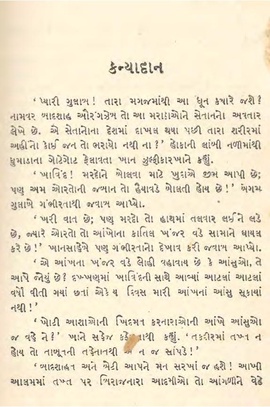 કન્યાદાન
'પ્યારી ગુલાબ! તારા મગજમાંથી આ ધૂન ક્યારે જશે?
નામવર બાદશાહ ઔરંગઝેબ તો આ મરાઠાઓને સેતાનનો અવતાર
લેખે છે. એ સેતાનોના દેશમાં દાખલ થયા પછી તારા શરીરમાં
અહીંનો કાઈ જન તો ભરાયો નથી ના?' હોકાની લાંબી નળીમાંથી
ધુમાડાના ગોટેગોટ ફેલાવતા ખાન ઝુલ્ફીકારખાને કહ્યું.
'ખાવિંદ! મરદોને બોલવા માટે ખુદાએ જીભ આપી છે;
પણ અમ ઓરતોની જબાન તો હૈયાવડે બોલતી હોય છે!' બેગમ
ગુલાબે ગંભીરતાથી જવાબ આપ્યો.
'ખરી વાત છે; પણ મરદો તો હાથમાં તલવાર લઈને લડે
છે, જ્યારે ઓરતો તો આંખોના કાતિલ ખંજર વડે સામાને ઘાયલ
કરે છે!' ખાનસાહેબે પણ ગંભીરતાનો દેખાવ કરી જવાબ આપ્યો.
'એ આંખના ખંજર વડે લોહી વહાવાય છે કે આંસુઓ, તે
આપે જોયું છે? દખ્ખણમાં ખાવિંદની સાથે આવ્યાં આટલાં આટલાં
વર્ષો વીતી ગયાં છતાં એકેય દિવસ મારી આંખનાં આંસુ સૂકાયાં
નથી!'
'ખોટી આશાઓની ખિદમત કરનારાઓની આંખો આંસુઓ
જ વહે ને?' ખાને સહેજ કહ્યું. 'તકદીરમાં તખ્ત ન
હોય તો તાબૂતની તહેનાતથી એ ન જ સાંપડે!'
'બાદશાહત અને બેટી આપને મન સરખાં જ હશે! આખી
આલમમાં તખ્ત પર બિરાજનારા આદમીઓ તો આંગળીને વેઢે